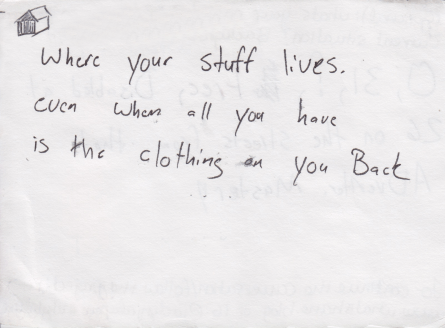 Where your stuff lives.
even when all you have
is the clothing on you Back